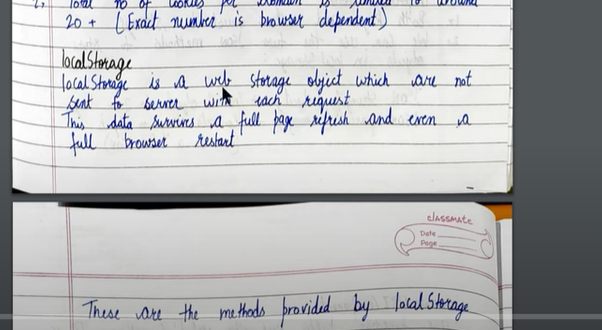 Total no of cookies per domain is limited to around
20 + (Exact number is browser dependent)
localStorage
localStorage is a web storage object which are not
sent to server with each request
This data survives a full page refresh and even a
full browser restart
classmate
Date
Page
These are the methods provided by localStorage